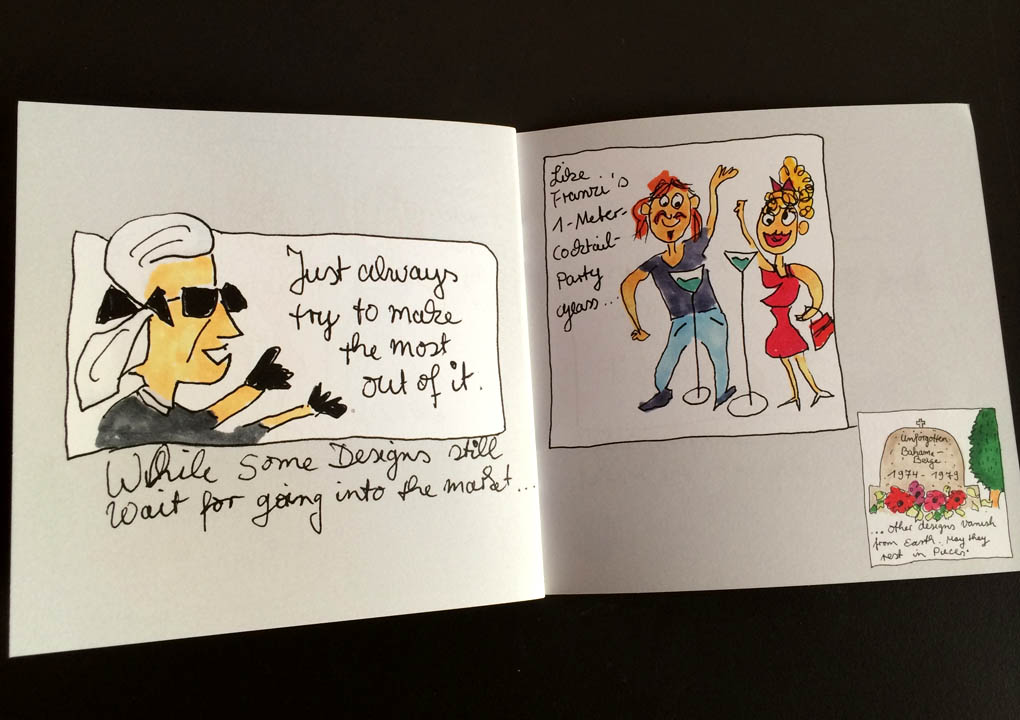 Just always
try to make
the most
out of it.
While some Designs still
wait for going into the market...
Like...
Franzi's
1-Meter-
Cocktail-
Party
glass...
Unforgotten
Bahama-
Beige
1974-1979
...other designs vanish
from Earth. May they
rest in Pieces.